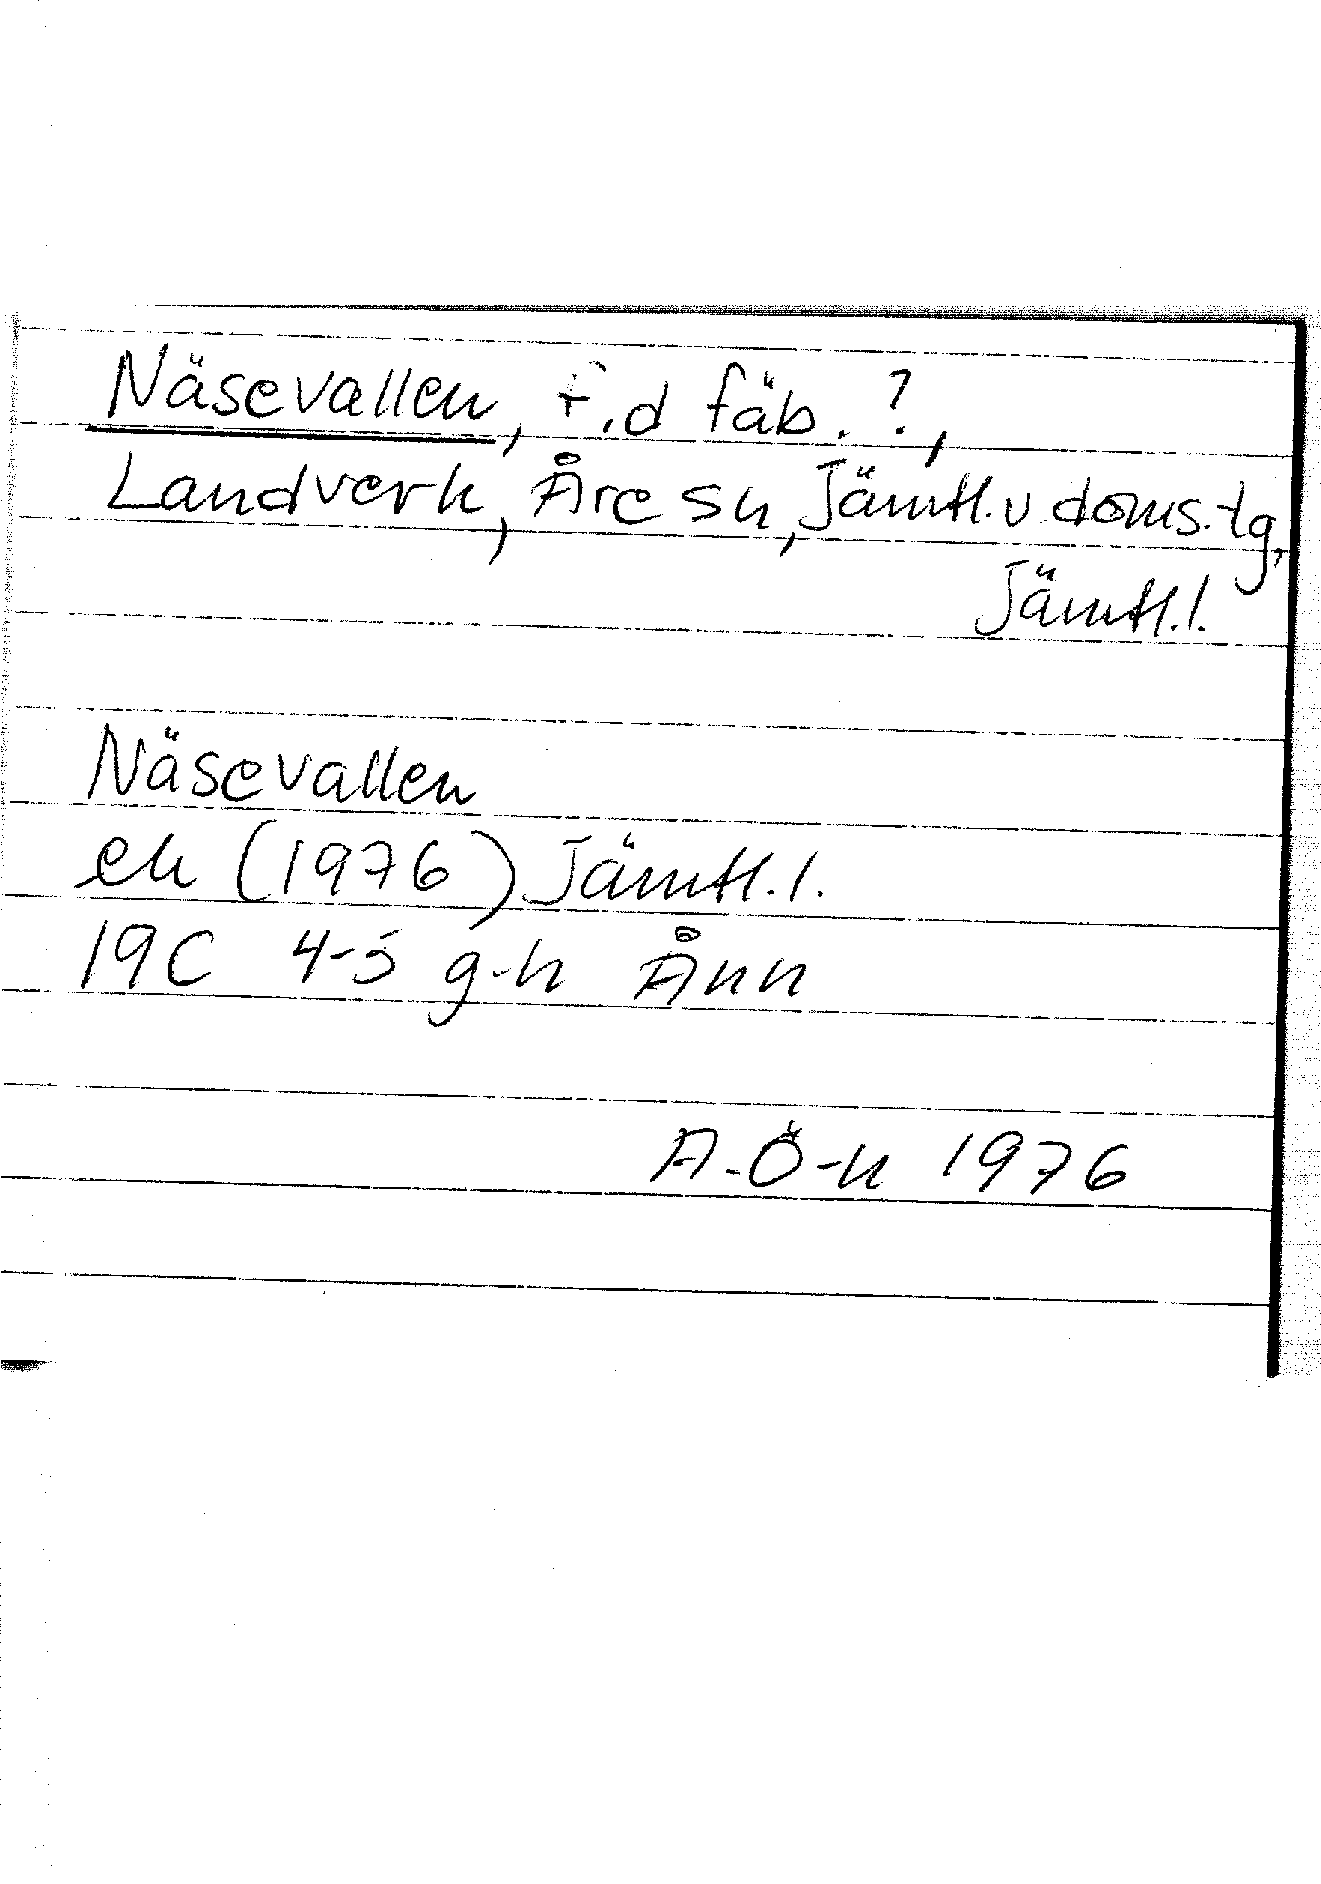 Näsevallen, f.d fäb.?,
Landverk, Åre sn, Jämtl. v doms.tg,
Jämtl.l.
Näsevallen
ek (1976) Jämtl.l.
19C 4-5 g-h Ånn
A-Ö-n 1976